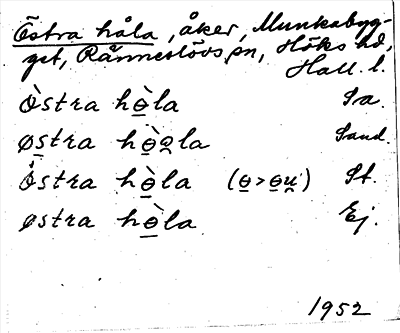 Östra håla, åker, Munkabyg-
get, Rännestövs sn, Höks hd,
Hall. l.
Òstra hө̠̀la Sa.
øs̠tra hө̠̀o̠̯la Sand.
Ö̀stra hө̠̀la (ө̠>ө̠u̯) St.
østra hө̠̀la Ej.
1952